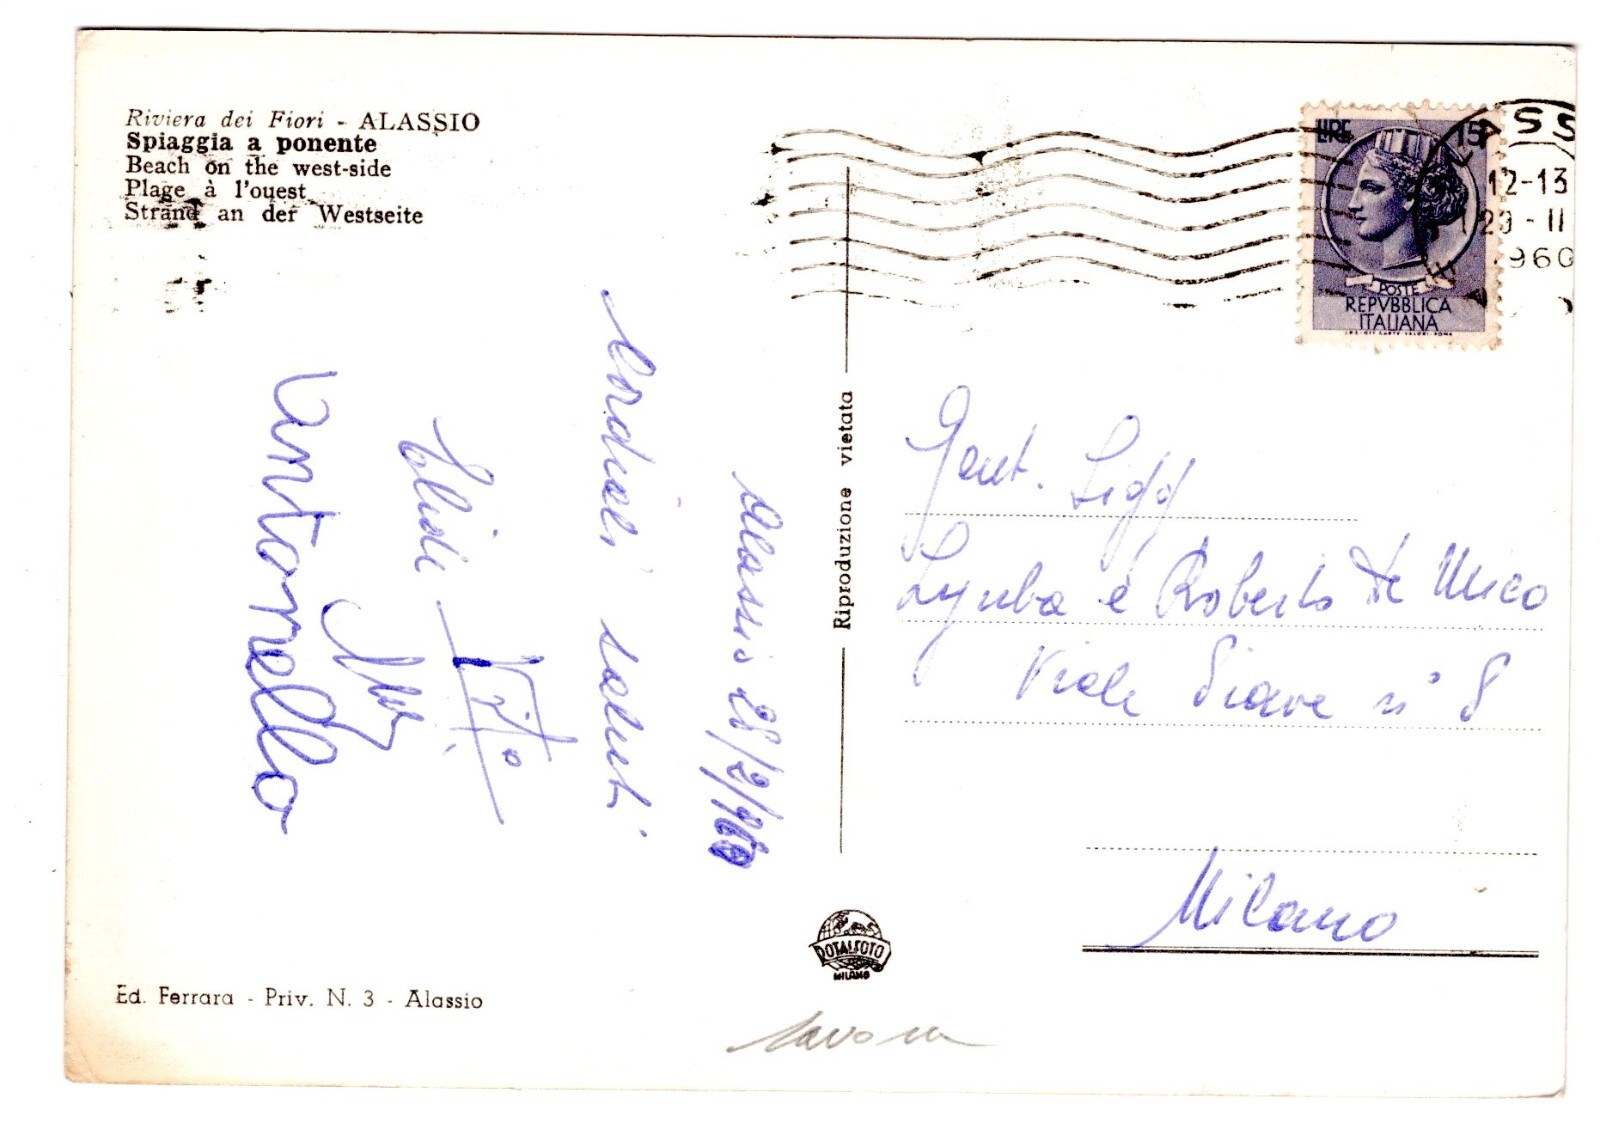 Riviera dei Fiori - ALASSIO
Spiaggia a ponente
Beach on the west-side
Plage à l'ouest
Strand an der Westseite
LIRE 15
POSTE
REPVBBLICA
ITALIANA
ASS
12-13
29 - II
1960
Alassio 28/2/960
Cordiali saluti
Antonello
Riproduzione vietata
Gent. Sigg
Lyuba e Roberto De Mico
Viale Piave n° 8
Milano
ROTALFOTO
MILANO
Ed. Ferrara - Priv. N. 3 - Alassio
Savona